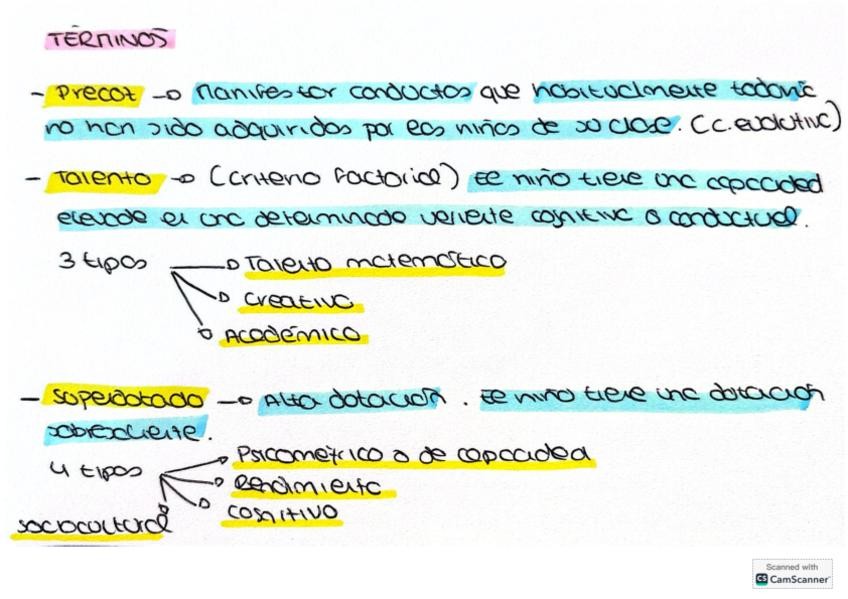 TÉRMINOS
- Precoz → Manifestar conductas que habitualmente todavía
no han sido adquiridas por los niños de su clase. (C. evolutivo)
- Talento → (criterio factorial) El niño tiene una capacidad
elevada en una determinada vertiente cognitiva o conductual.
3 tipos → Talento matemático
→ Creativo
→ Académico
- Superdotado → Alta dotación. El niño tiene una dotación
sobresaliente.
4 tipos → Psicométrico o de capacidad
→ Rendimiento
→ Cognitivo
Sociocultural
Scanned with
CS CamScanner